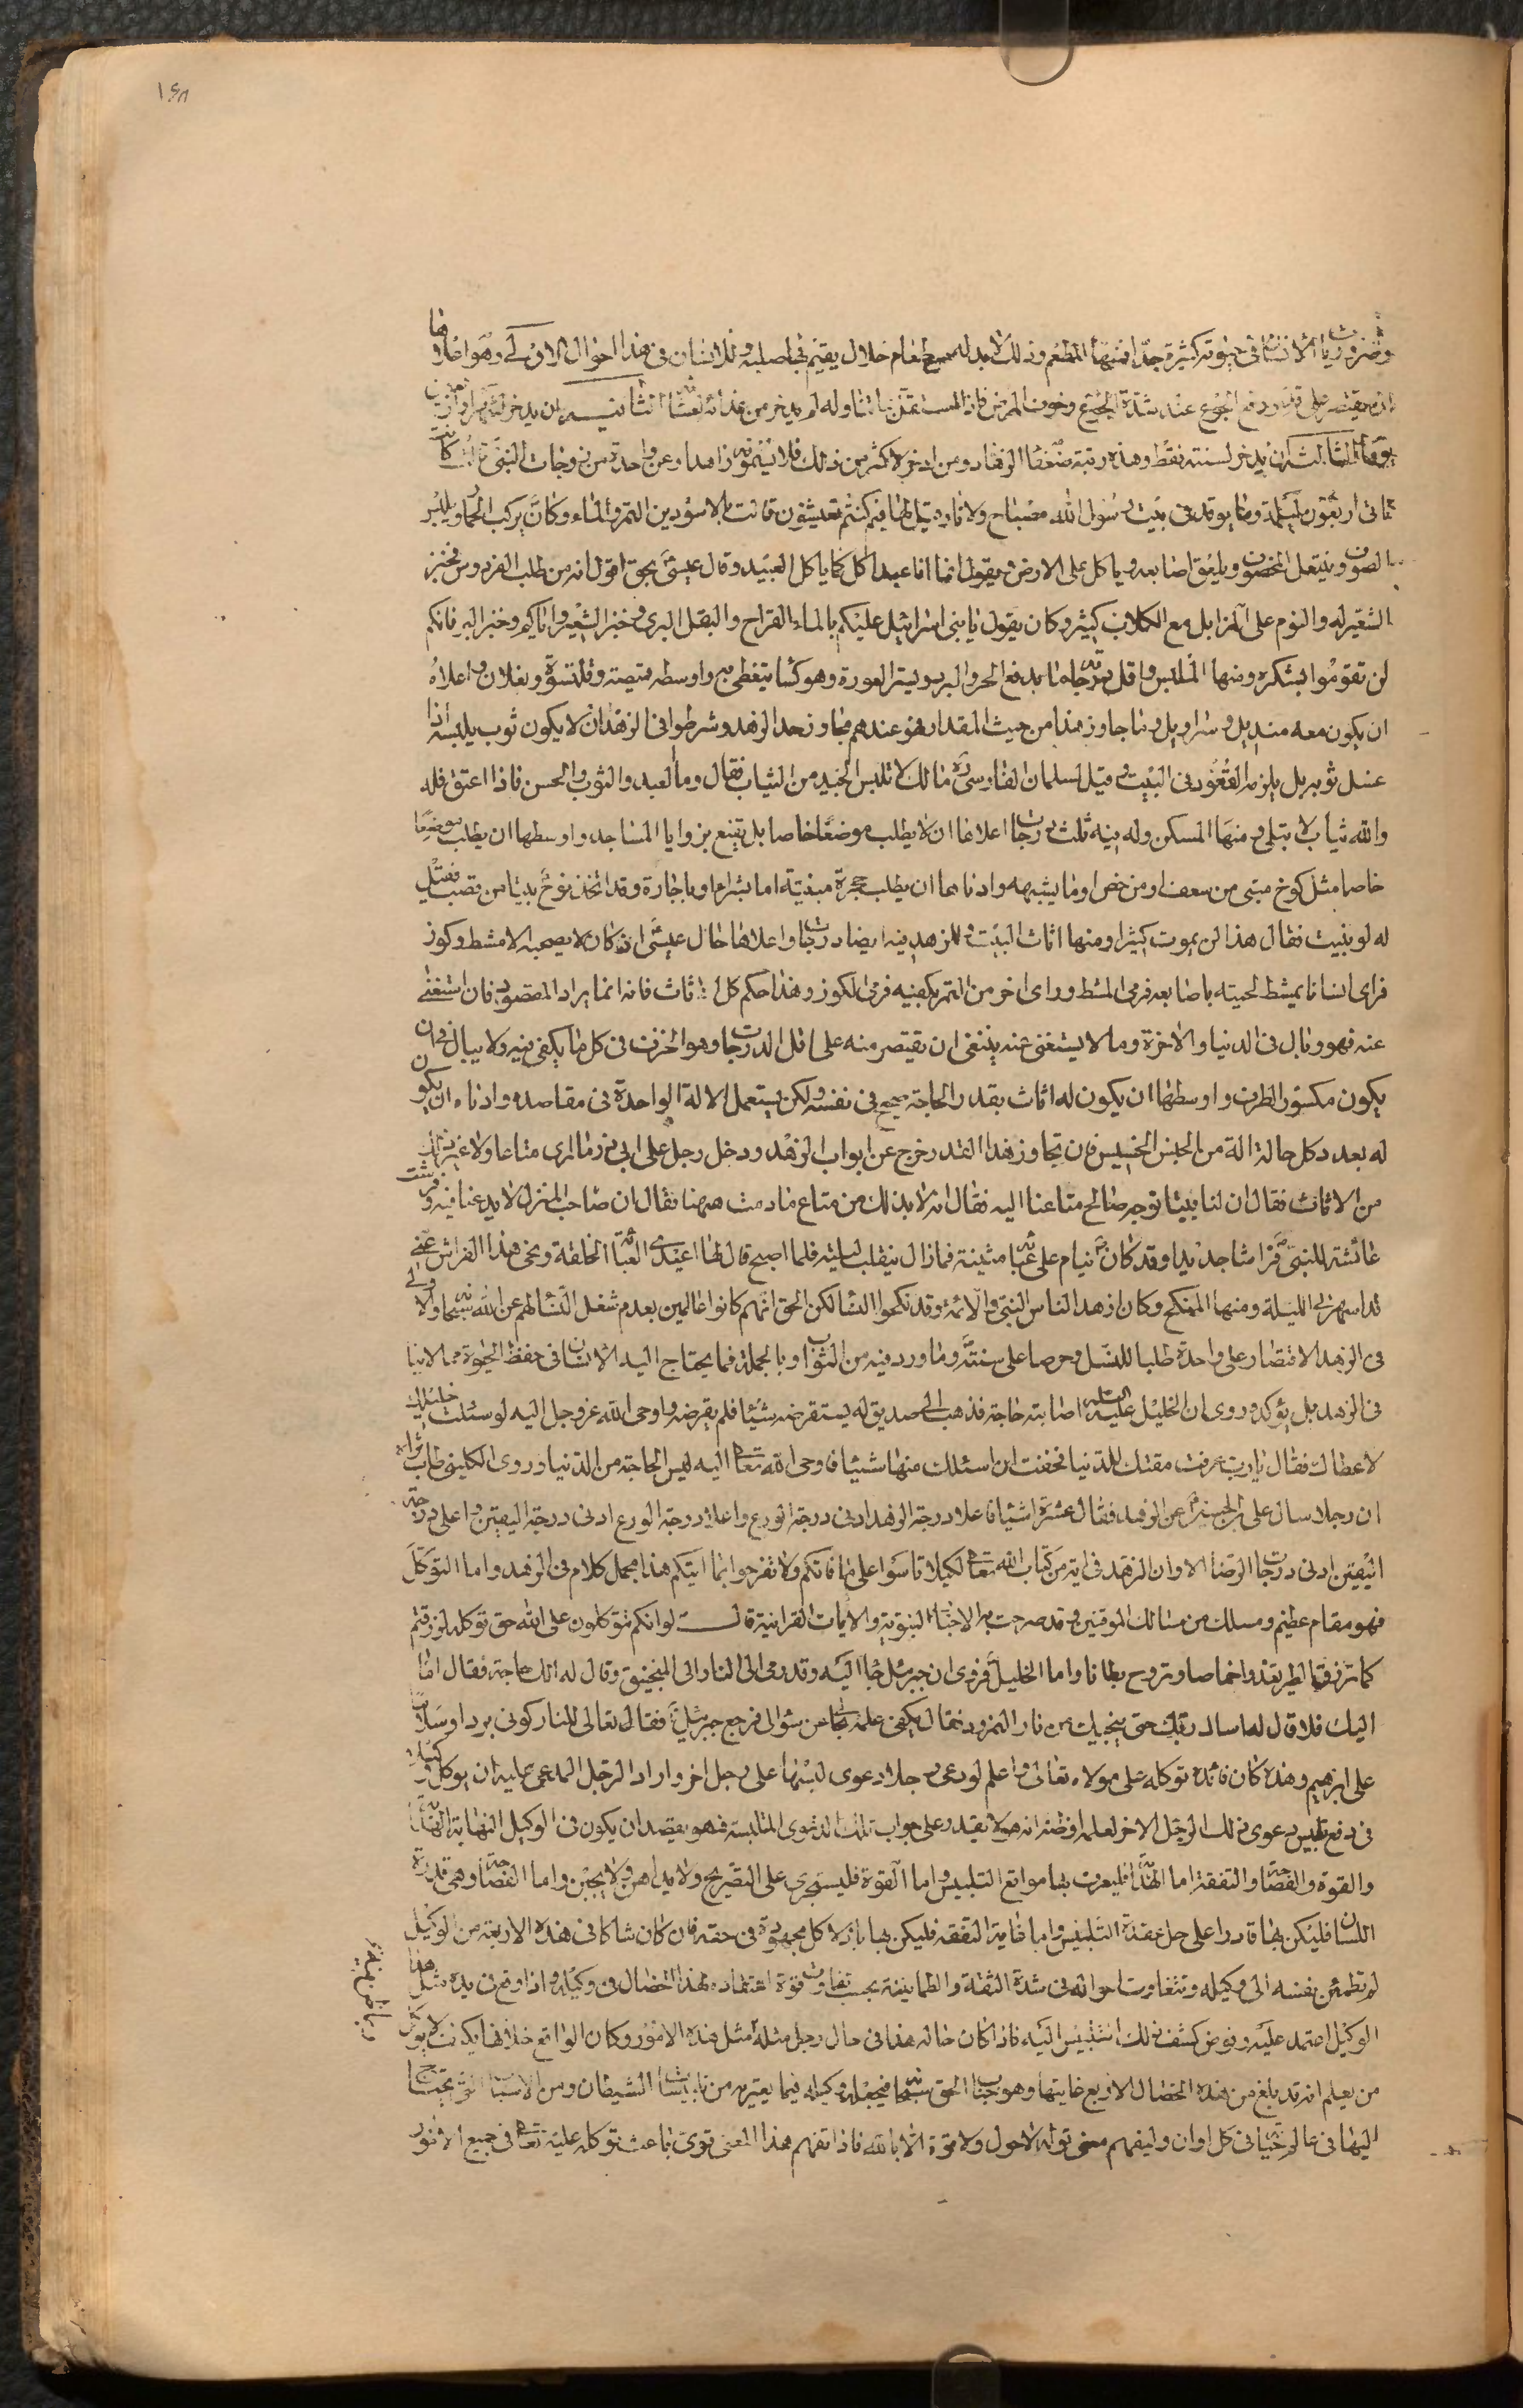 ١٤٨
وضروريات الانسان في حيوته كثيرة جدا فمنها المطعم وذلك لا بد له من طعام حلال يقيم به صلبه وللانسان في هذا احوال الاولى وهو اعلاها
ان يقتصر على قدر دفع الجوع عند شدة الجوع وخوف المرض فاذا استقل بما تناوله لم يدخر من غذائه لعشائه الثانية ان يدخر لشهر او اربعين
يوما الثالثة ان يدخر لسنته فقط وهذه رتبة ضعفاء الزهاد ومن ادخر لاكثر من ذلك فلا تسموه زاهدا وعن واحدة من زوجات النبي ص كانت
تاتي اربعون ليلة وما يوقد في بيت رسول الله مصباح ولا نار قيل لها فبم كنتم تعيشون قالت بالاسودين التمر والماء وكان يركب الحمار ويلبس
الصوف وينتعل المخصوف ويلعق اصابعه وياكل على الارض ويقول انما انا عبد اكل كما ياكل العبيد وقال عيسى بحق اقول انه من طلب الفردوس فخبز
الشعير له والنوم على المزابل مع الكلاب كثير وكان يقول يا بني اسرائيل عليكم بالماء القراح والبقل البري وخبز الشعير واياكم وخبز البر فانكم
لن تقوموا بشكره ومنها الملبس واقل درجاته ما يدفع الحر والبرد ويستر العورة وهو كساء يتغطى به واوسطه قميصة وقلنسوة ونعلان واعلاه
ان يكون معه منديل وسراويل وما جاوز هذا من حيث المقدار فهو عندهم مجاوز حد الزهد وشرطوا في الزهد ان لا يكون ثوب يلبسه اذا
غسل ثوبه بل يلزمه القعود في البيت وقيل لسلمان الفارسي ره مالك لا تلبس الجيد من الثياب فقال وما للعبد والثوب الحسن فاذا اعتق فله
والله ثياب لا تبلى ومنها المسكن وله فيه ثلث درجات اعلاها ان لا يطلب موضعا خاصا بل يقنع بزوايا المساجد واوسطها ان يطلب موضعا
خاصا مثل كوخ مبني من سعف او من خص او ما يشبهه وادناها ان يطلب حجرة مبنية اما بشراء او باجارة وقد اتخذ نوح بيتا من قصب فقيل
له لو بنيت فقال هذا لمن يموت كثير ومنها اثاث البيت وللزهد فيه ايضا درجات اعلاها حال عيسى اذ كان لا يصحبه الا مشط وكوز
فراى انسانا يمشط لحيته باصابعه فرمى المشط وراى اخر من النهر بكفيه فرمى الكوز وهذا حكم كل اثاث فانه انما يراد لمقصود فان استغنى
عنه فهو وبال في الدنيا والاخرة وما لا يستغنى عنه ينبغي ان يقتصر منه على اقل الدرجات وهو الخزف في كل ما يكفي فيه ولا يبالي ان
يكون مكسور الطرف واوسطها ان يكون له اثاث بقدر الحاجة صحيح في نفسه ولكن يستعمل الالة الواحدة في مقاصد وادناه ان يكون
له بعدد كل حالة الة من الجنس الخسيس فان تجاوز هذا القدر خرج عن ابواب الزهد ودخل رجل على ابي ذر ما ارى متاعا ولا غير ذلك
من الاثاث فقال ان لنا بيتا نوجه صالح متاعنا اليه فقال انه لا بد لك من متاع ما دمت ههنا فقال ان صاحب المنزل لا يدعنا فيه وفرشت
عائشة للنبي ص فراشا جديدا وقد كان ص ينام على عبائة مثنية فما زال يتقلب ليلته فلما اصبح قال لها اعيدي العبائة الخلقة ونحي هذا الفراش عني
قد اسهرني الليلة ومنها المنكح وكان ازهد الناس النبي والائمة وقد نكحوا النساء لكن الحق انهم كانوا عالمين بعدم شغل النساء لهم عن الله سبحانه والاولى
في الزهد الاقتصار على واحدة طلبا للنسل وحرصا على سنته وما ورد فيه من الثواب وبالجملة فما يحتاج اليه الانسان في حفظ الحيوة مما لا ينافي
في الزهد بل يؤكد وروى ان الخليل عليه السلام اصابته حاجة فذهب الى صديق له يستقرضه شيئا فلم يقرضه واوحى الله عز وجل اليه لو سئلت خليلك
لاعطاك فقال يا رب عرفت مقتك للدنيا فخفت ان اسئلك منها شيئا فاوحى الله تعالى اليه ليس الحاجة من الدنيا وروى الكليني طاب ثراه
ان رجلا سال علي بن الحسين ع عن الزهد فقال عشرة اشياء فاعلا درجة الزهد ادنى درجة الورع واعلا درجة الورع ادنى درجة اليقين واعلى درجة
اليقين ادنى درجات الرضا الا وان الزهد في اية من كتاب الله تعالى لكيلا تاسوا على ما فاتكم ولا تفرحوا بما اتيكم هذا مجمل كلام في الزهد واما التوكل
فهو مقام عظيم ومسلك من مسالك الموقنين وقد صرحت به الاخبار النبوية والايات القرانية قال ص لو انكم تتوكلون على الله حق توكله لرزقتم
كما ترزق الطير تغدو خماصا وتروح بطانا واما الخليل فروى ان جبرئيل جاء اليه وقد رمى الى النار الى المنجنيق وقال له الك حاجة فقال اما
اليك فلا قال له اسال ربك حتى ينجيك من نار النمرود فقال يكفي علمه بحالي عن سؤالي فرجع جبرئيل فقال تعالى للنار كوني بردا وسلاما
على ابرهيم وهذه كان فائدة توكله على مولاه تعالى واعلم لو دعى رجلا دعوى لبسها على رجل اخر واراد الرجل المدعى عليه ان يوكل وكيلا
في دفع تلبيس دعوى ذلك الرجل الاخر لعلمه او ظنه انه لا يقدر على جواب تلك الدعوى المتلبسة فهو يقصد ان يكون في الوكيل النهاية الهداية
والقوة والفصاحة والتفقه اما الهداية فليعرف بها مواقع التلبيس واما القوة فليستجري على التصريح ولا يداهن ولا يجبن واما الفصاحة وهي قدرة
اللسان فليكن بها قادرا على حل عقدة التلبيس واما غاية التفقه فليكن بها باذلا كل مجهوده في حقه فان كان شاكا في هذه الاربعة من الوكيل
لم تطمئن نفسه الى وكيله وتتفاوت احواله في شدة الثقة والطمانينة بحسب تفاوت قوة اعتقاده لهذا الخصال في وكيله واذا وقع في يده مثل هذا
الوكيل اعتمد عليه وفوض كشف ذلك التلبيس اليه فاذا كان حاله هذا في حال رجل مثله مثل هذه الامور وكان الواقع خلافها فكيف لا يوكل
من يعلم انه قد بلغ من هذه الخصال الاربع غايتها وهو جناب الحق سبحانه فيجعله وكيله فيما يعتريه من تلبيسات الشيطان ومن الاسباب التي يحتاج
اليها في عالم حياته في كل اوان وليفهم معنى قوله لا حول ولا قوة الا بالله فاذا تفهم هذا المعنى قوى باعث توكله عليه تعالى في جميع الامور